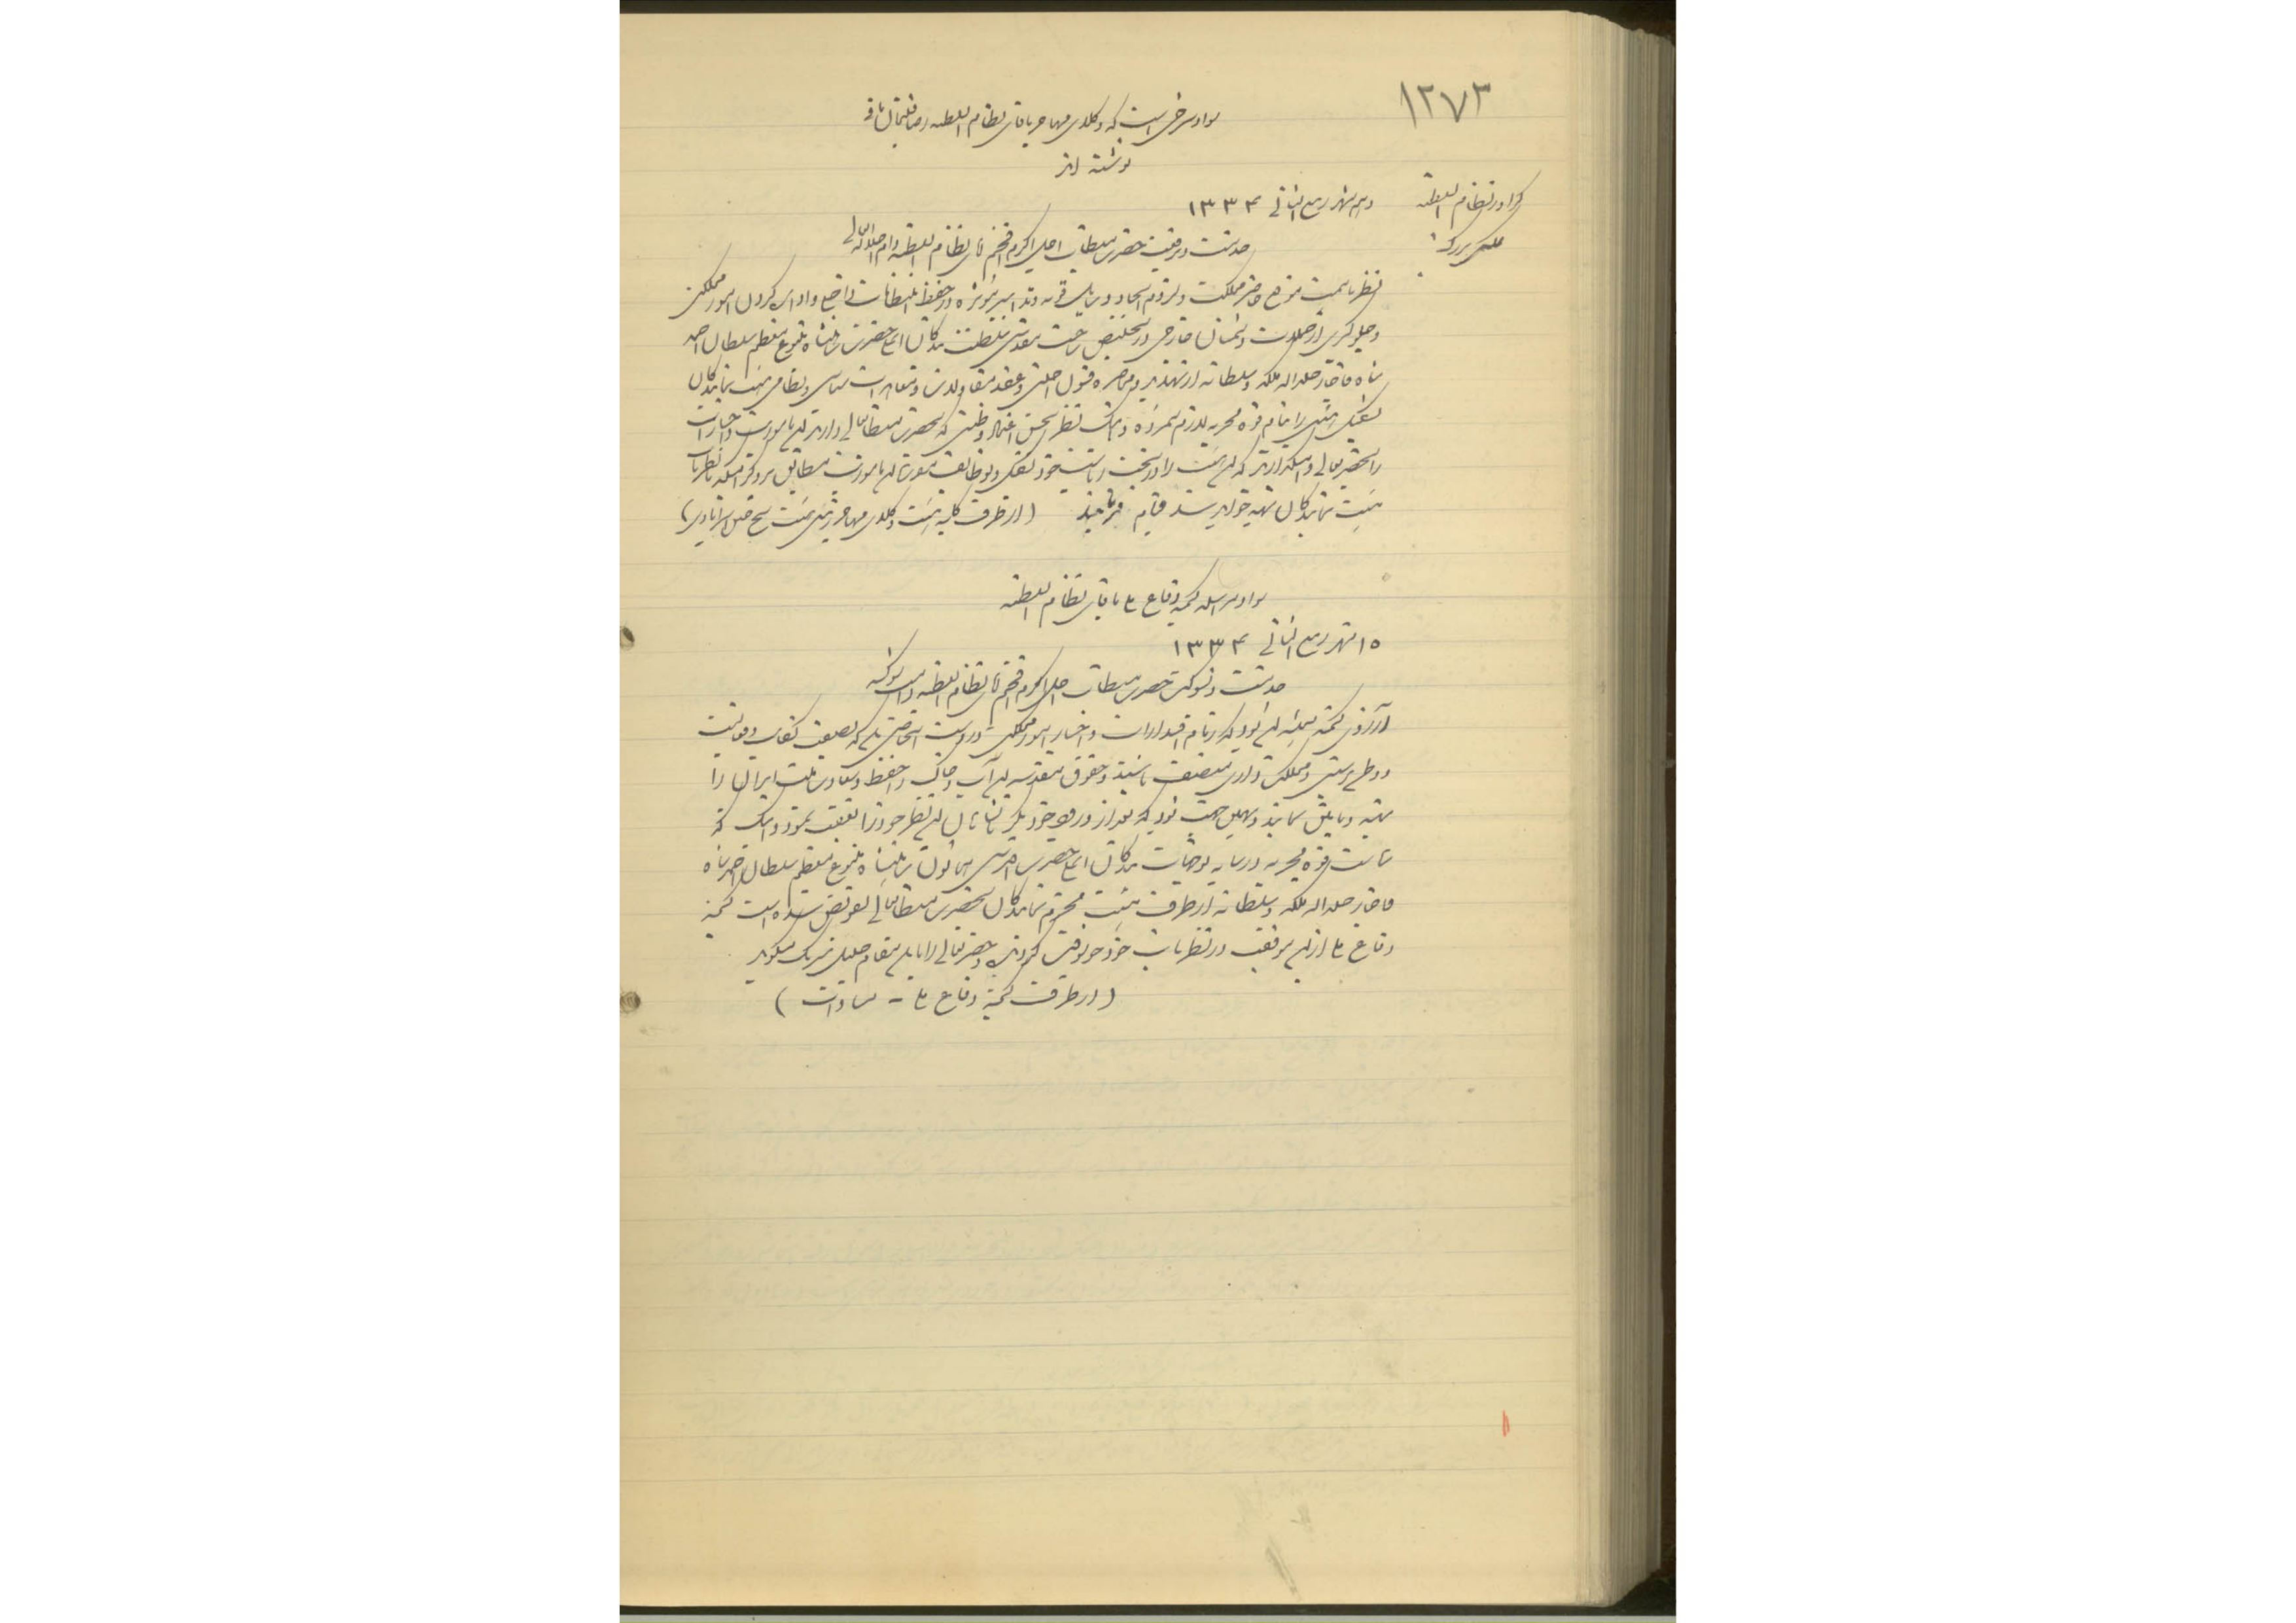 ۱۲۷۳
سواد شرحی است که وکلای مهاجر باقای نظام السلطنه رضاقلیخان مافی
نوشته اند
دهم شهر ربیع الثانی ۱۳۳۴
نظام السلطنه
خدمت حضرت مستطاب اجل اکرم افخم آقای نظام السلطنه دام اجلاله العالی
نظر باهمیت موقع حاضر مملکت و لزوم اتحاد وسایل قویه و تدابیر مؤثره در حفظ انتظامات داخلی و اداره کردن امور مملکتی
و جلوگیری از حملات دشمنان خارجی و تخلیص پایتخت مقدس سلطنت بندگان اعلیحضرت شاهنشاه متبوع معظم سلطان احمد
شاه قاجار خلد الله ملکه و سلطانه از تهدید و محاصره قشون اجنبی و عقد مقاولات و تعهدات سیاسی و نظامی هیئت نمایندگان
تشکیل هیئتی را بنام قوه مجریه لازم شمرده و اینک نظر بحسن اعتماد و ظنی که بحضرت مستطابعالی دارند این مأموریت و اختیارات
را بحضرتعالی وامیگذارند که این هیئت را در تحت ریاست خود تشکیل و بوظایف مقرره این مأموریت مطابق پروگرامیکه با نظریات
هیئت نمایندگان تهیه خواهد شد قیام فرمایند (از طرف کلیه هیئت وکلای مهاجر رئیس هیئت شیخ حسین استرآبادی)
سواد مراسله کمیته دفاع ملی باقای نظام السلطنه
۱۵ شهر ربیع الثانی ۱۳۳۴
خدمت ذیشوکت حضرت مستطاب اجل اکرم افخم آقای نظام السلطنه دامت شوکته
آرزوی کمیته همیشه این بود که زمام اقتدارات و اختیار امور مملکتی در دست اشخاصی باشد که بصفت کفایت و درایت
و وطن پرستی و مملکت داری متصف باشند و حقوق مقدسه این آب و خاک را حفظ و سعادت ملت ایران را
تهیه و تأمین نمایند و بهمین جهت بود که بعد از ورود خود بکرمانشاهان این نظر خود را تعقیب نموده و اینک که
ریاست قوه مجریه در سایه توجهات بندگان اعلیحضرت اقدس همایون شاهنشاه متبوع معظم سلطان احمد شاه
قاجار خلد الله ملکه و سلطانه از طرف هیئت محترم نمایندگان بحضرت مستطابعالی تفویض شده است کمیته
دفاع ملی از این موفقیت در نظریات خود خوشوقتی کرده و حضرتعالی را باین مقام جلیل تبریک میگوید
(از طرف کمیته دفاع ملی - مساوات)